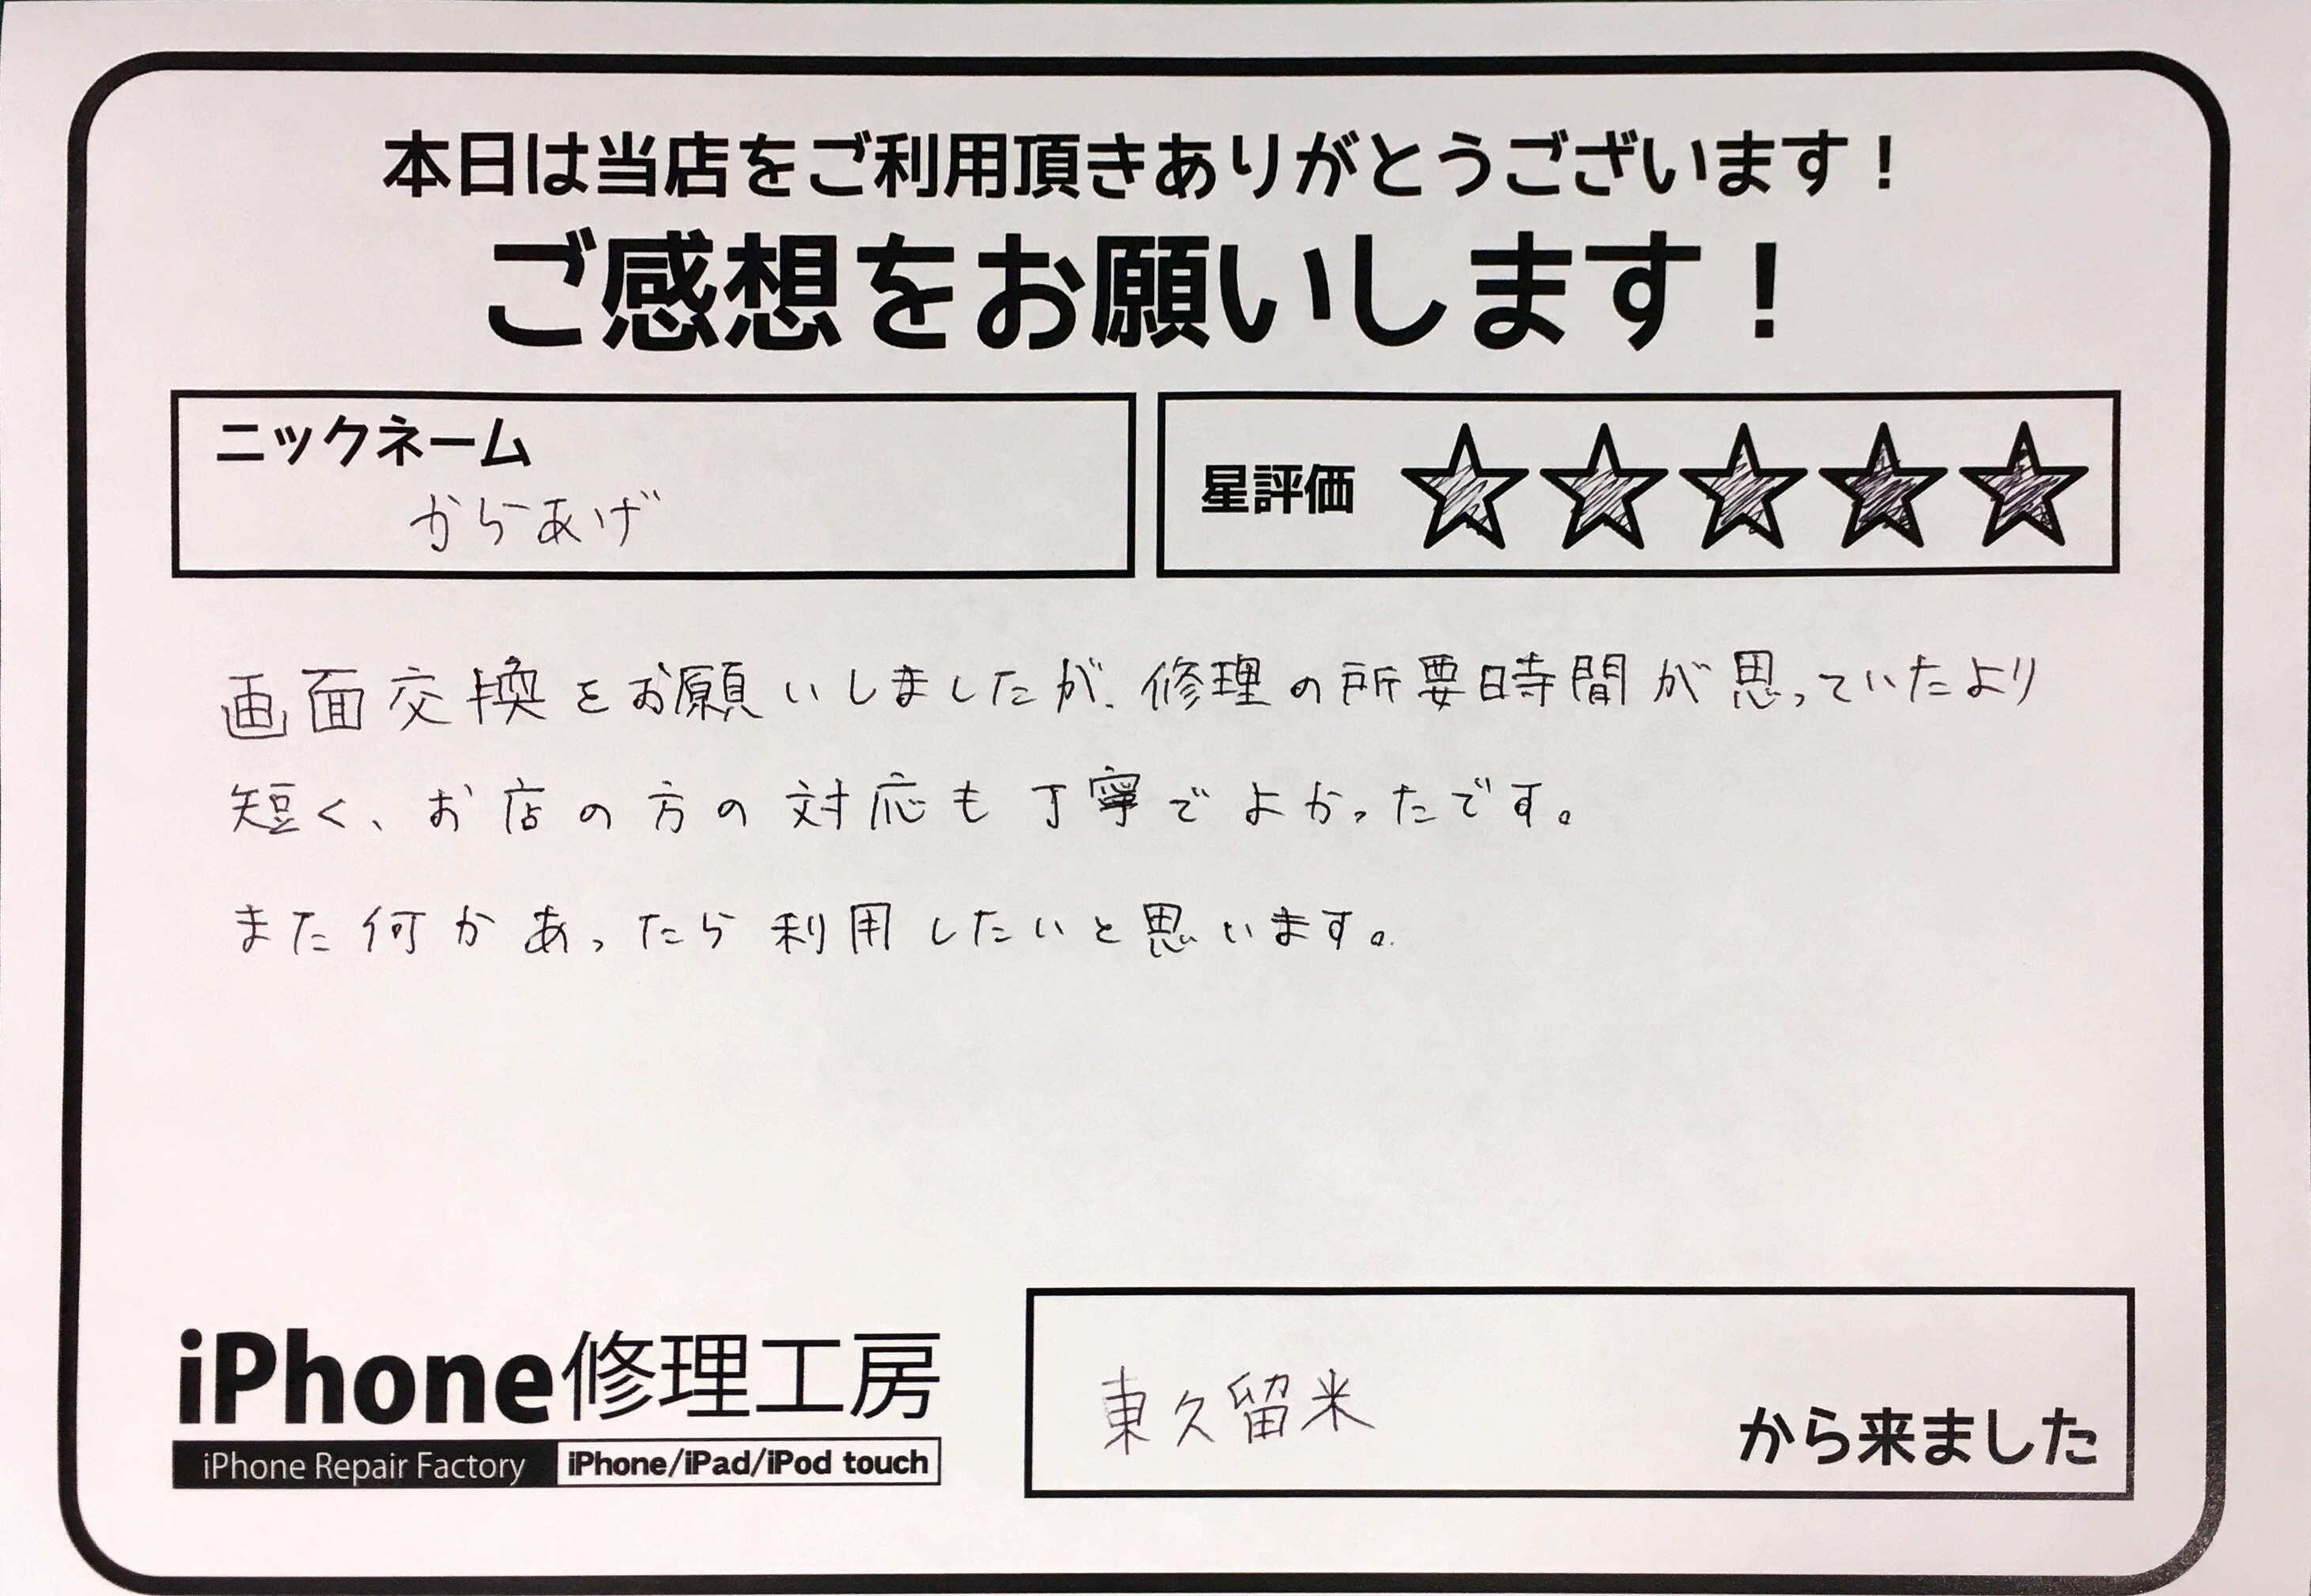 本日は当店をご利用頂きありがとうございます！
ご感想をお願いします！
ニックネーム
からあげ
星評価 ★★★★★
画面交換をお願いしましたが、修理の所要時間が思っていたより
短く、お店の方の対応も丁寧でよかったです。
また何かあったら利用したいと思います。
iPhone修理工房
iPhone Repair Factory iPhone/iPad/iPod touch
東久留米 から来ました